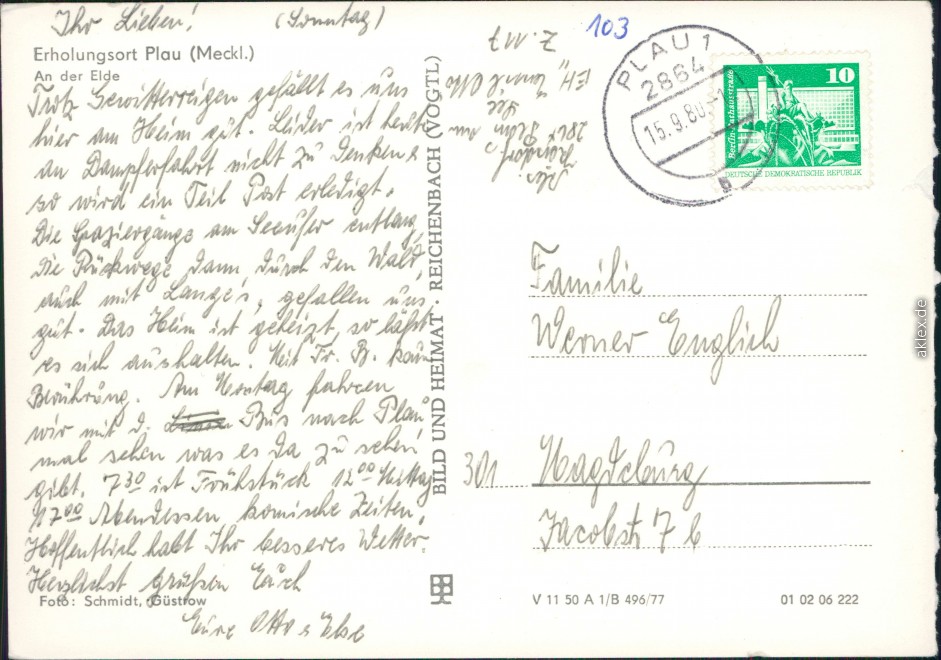 Ihr Lieben! (Sonntag)
Erholungsort Plau (Meckl.)
An der Elde
Trotz Gewitterregen gefällt es uns
hier am Heim gut. Leider ist heute
an Dampferfahrt nicht zu denken &
so wird ein Teil Post erledigt.
Die Spaziergänge am Seeufer entlang,
die Rückwege dann durch den Wald,
auch mit Lange's, gefallen uns
gut. Das Heim ist geheizt, so läßt
es sich aushalten. Mit Fr. B. kaum
Berührung. Am Montag fahren
wir mit d. Bus nach Plau,
mal sehen was es da zu sehen
gibt. 7³⁰ ist Frühstück 12⁰⁰ Mittag
17⁰⁰ Abendessen, komische Zeiten.
Hoffentlich habt Ihr besseres Wetter.
Herzlichst grüßen Euch
Foto: Schmidt, Güstrow
Eure Otto & Else
BILD UND HEIMAT · REICHENBACH (VOGTL)
Abs.
286 Plau am
See
Z. M7
103
PLAU 1
2864
15.9.80-1
b
10
Berlin-Rathausstraße
DEUTSCHE DEMOKRATISCHE REPUBLIK
Familie
Werner Englich
301 Magdeburg
Jacobstr 7 b
V 11 50 A 1/B 496/77 01 02 06 222
aklex.de